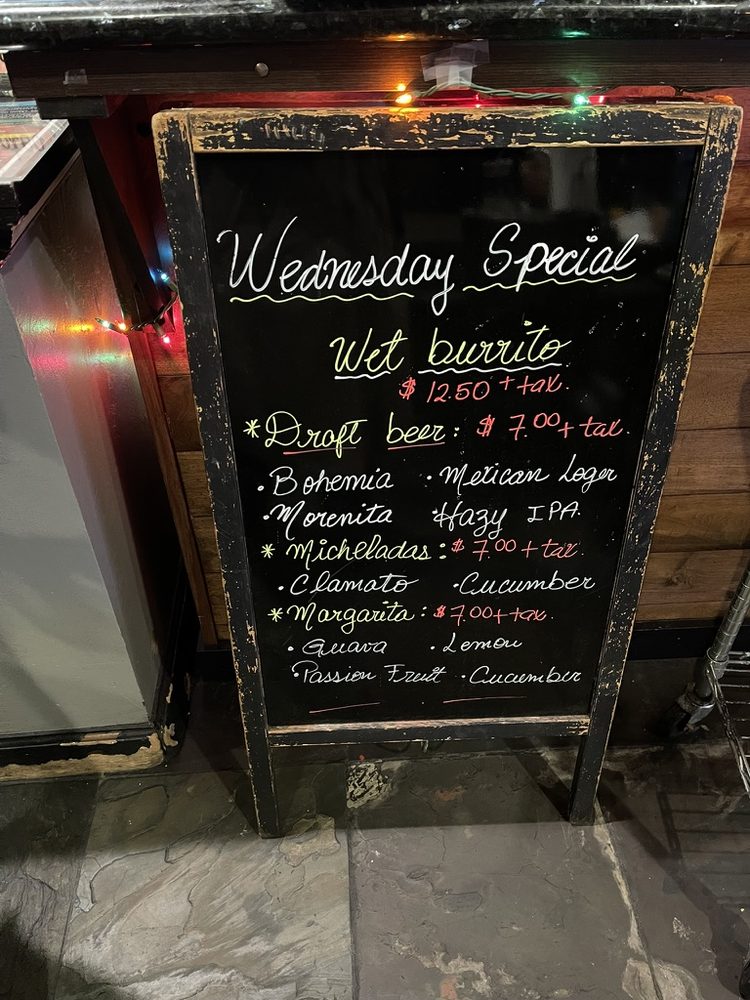 Wednesday Special
Wet burrito
$ 12.50 + tax.
*Draft beer: $ 7.00 + tax.
• Bohemia • Mexican Lager
• Morenita • Hazy IPA
* Micheladas: $ 7.00 + tax.
• Clamato • Cucumber
* Margarita: $7.00 + tax.
• Guava • Lemon
• Passion Fruit • Cucumber